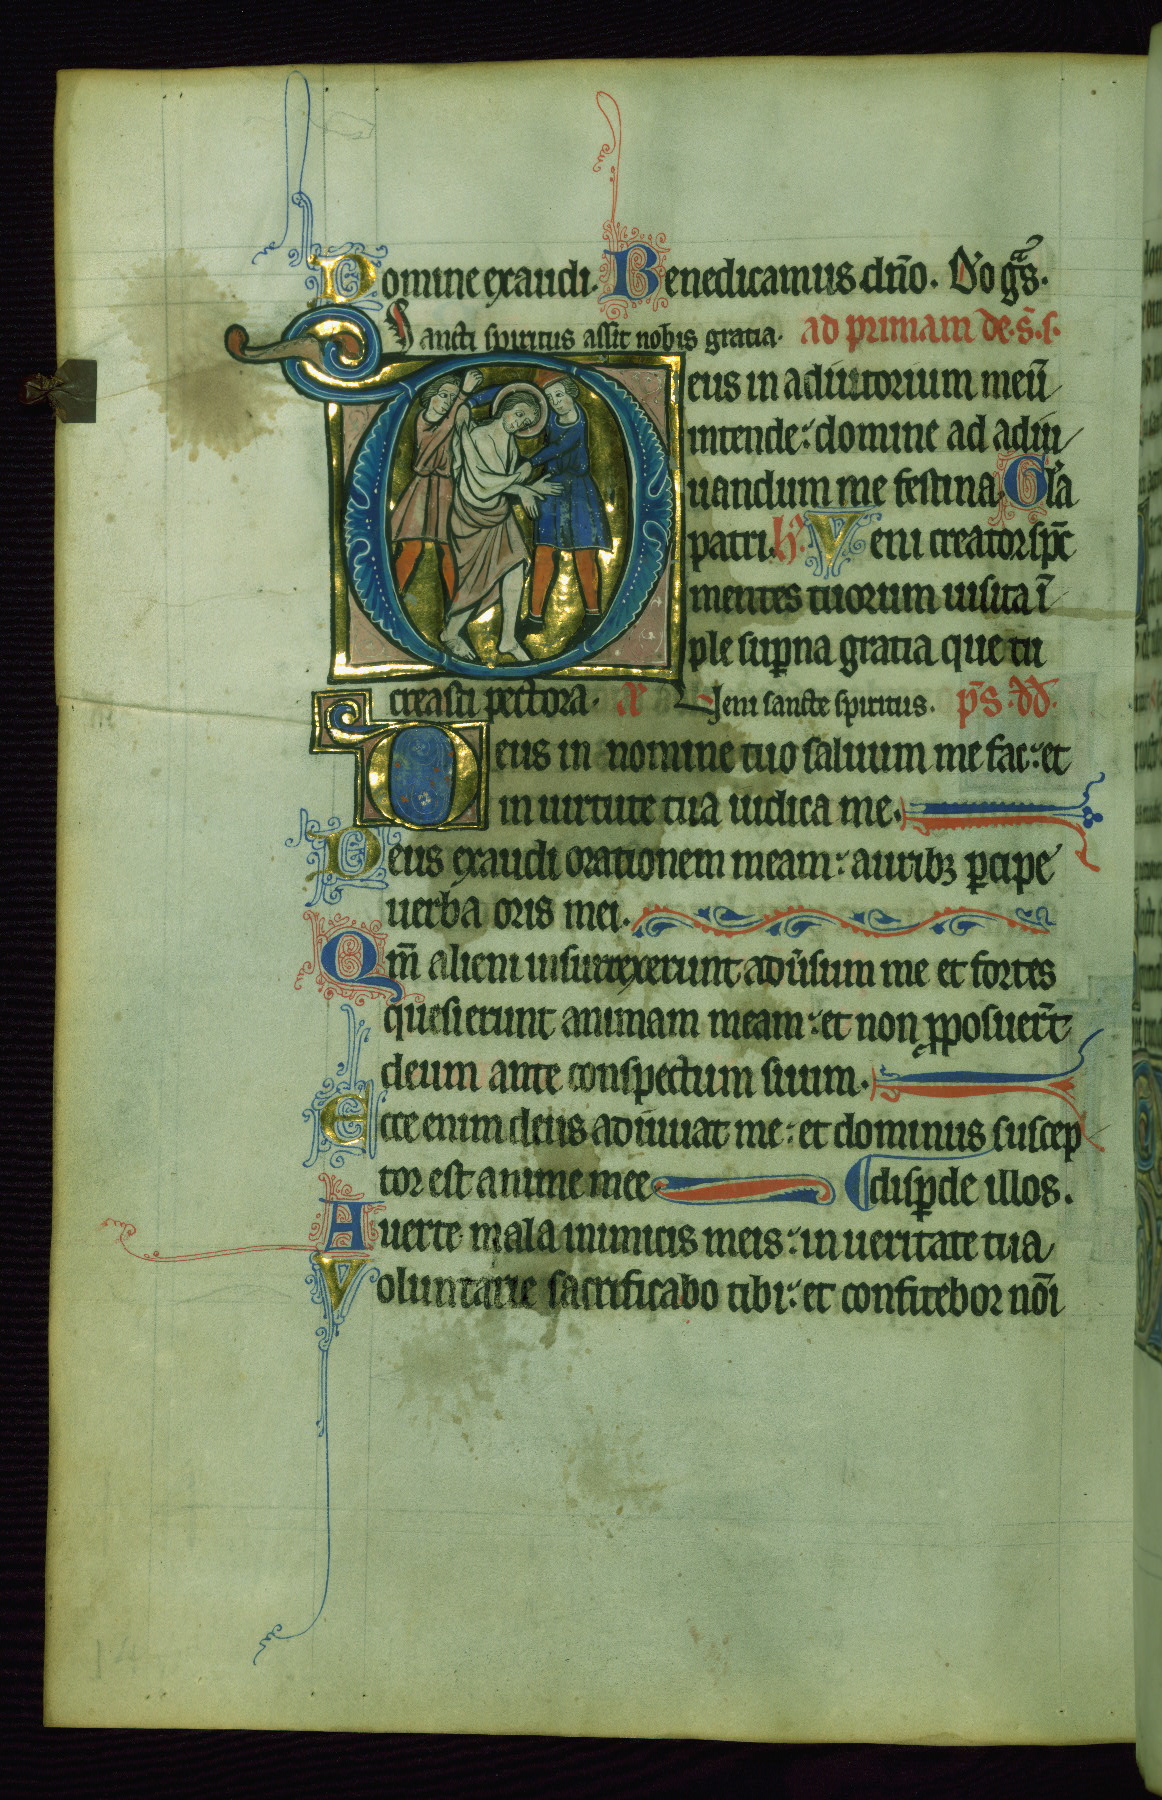 Domine exaudi. Benedicamus dño. Do gr̃s.
Sancti spiritus assit nobis gratia. ad primam de.s̃.s.
Deus in adiutorium meũ
intende: domine ad adiu
uandum me festina. Gl̃a
patri. h'. Veni creator sp̃c
mentes tuorum uisita ĩ
ple sup̱na gratia que tu
creasti pectora. Veni sancte spiritus. p̃s. dd̃.
Deus in nomine tuo saluum me fac: et
in uirtute tua iudica me.
Deus exaudi orationem meam: auribꝫ ꝑcipe
uerba oris mei.
Qm̃ alieni insurrexerunt adũsum me et fortes
quesierunt animam meam: et non ꝓposuer̃t
deum ante conspectum suum.
Ecce enim deus adiuuat me: et dominus suscep
tor est anime mee disꝑde illos.
Auerte mala inimicis meis: in ueritate tua
Voluntarie sacrificabo tibi: et confitebor nõi